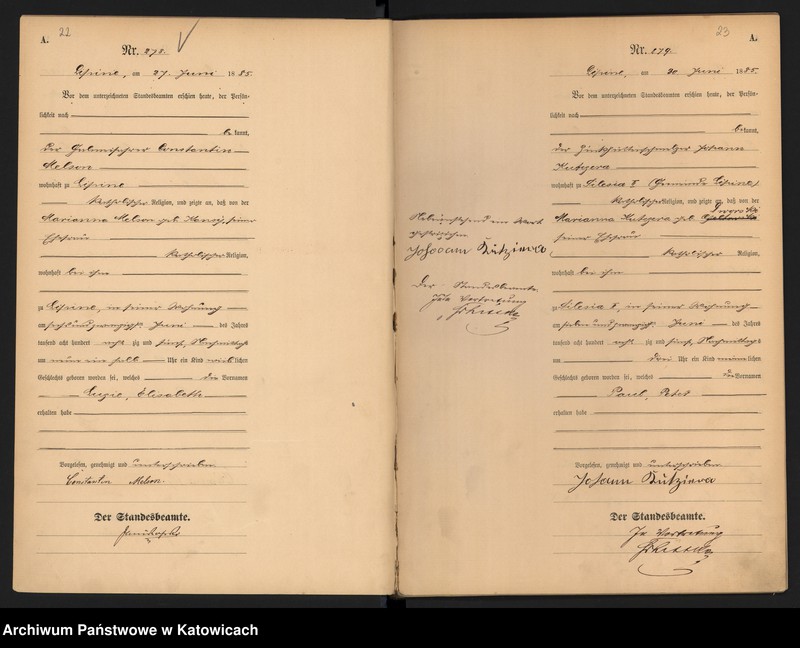 A. 22
Nr. 278.
Lipine, am 27. Juni 1885.
Vor dem unterzeichneten Standesbeamten erschien heute, der Persön-
lichkeit nach
bekannt,
der Constantin
Melson
wohnhaft zu Lipine
katholischer Religion, und zeigte an, daß von der
Marianna Melson geb. seiner
Ehefrau
katholischer Religion,
wohnhaft bei ihm
zu Lipine, in seiner Wohnung
am sechs und zwanzigsten Juni des Jahres
tausend acht hundert acht zig und fünf, Nachmittags
um neun ein halb Uhr ein Kind weiblichen
Geschlechts geboren worden sei, welches die Vornamen
Elisabeth
erhalten habe
Vorgelesen, genehmigt und unterschrieben
Constantin Melson.
Der Standesbeamte.
23 A.
Nr. 279.
Lipine, am Juni 1885.
Vor dem unterzeichneten Standesbeamten erschien heute, der Persön-
lichkeit nach
bekannt,
der Zinkhüttenschmelzer Johann
Kutzera
wohnhaft zu Silesia V (Gemeinde Lipine)
katholischer Religion, und zeigte an, daß von der
Marianna Kutzera geb.
seiner Ehefrau
katholischer Religion,
wohnhaft bei ihm
zu Silesia V, in seiner Wohnung
am sieben und zwanzigsten Juni des Jahres
tausend acht hundert acht zig und fünf, Nachmittags
um drei Uhr ein Kind männlichen
Geschlechts geboren worden sei, welches die Vornamen
Paul, Peter
erhalten habe
Vorgelesen, genehmigt und unterschrieben
Johann Kutziera
Der Standesbeamte.
In Vertretung
Nebenstehend ein Wort
gestrichen
Johann Kutziera
Der Standesbeamte.
In Vertretung
Archiwum Państwowe w Katowicach